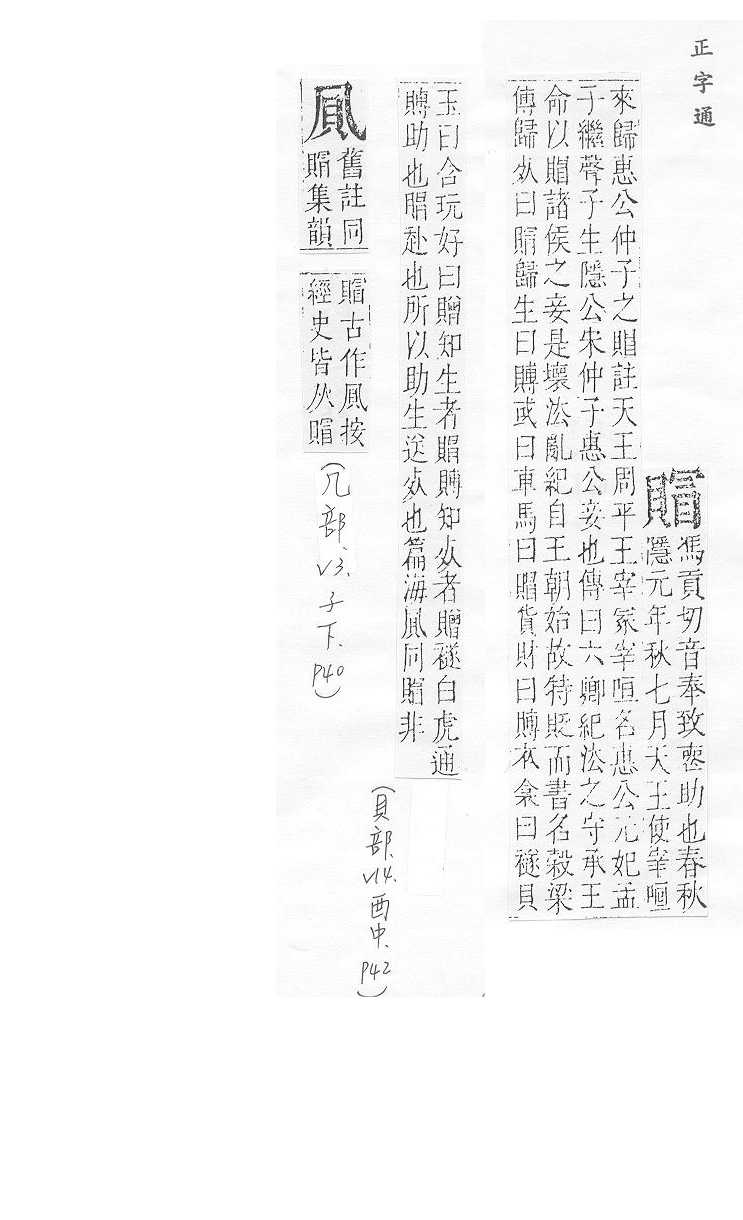 正字通
賵
馮貢切音奉致喪助也春秋
隱元年秋七月天王使宰咺
來歸惠公仲子之賵註天王周平王宰冢宰咺名惠公元妃孟
子繼聲子生隱公宋仲子惠公妾也傳曰六卿紀法之守承王
命以賵諸侯之妾是壞法亂紀自王朝始故特貶而書名穀梁
傳歸死曰賵歸生曰賻或曰車馬曰賵貨財曰賻衣衾曰襚貝
玉曰含玩好曰贈知生者賵賻知死者贈襚白虎通
賻助也賵赴也所以助生送死也篇海凮同賵非
(貝部、v14、酉中、P42)
凮
舊註同
賵集韻
賵古作凮按
經史皆从賵
(几部、v3、子下、P40)